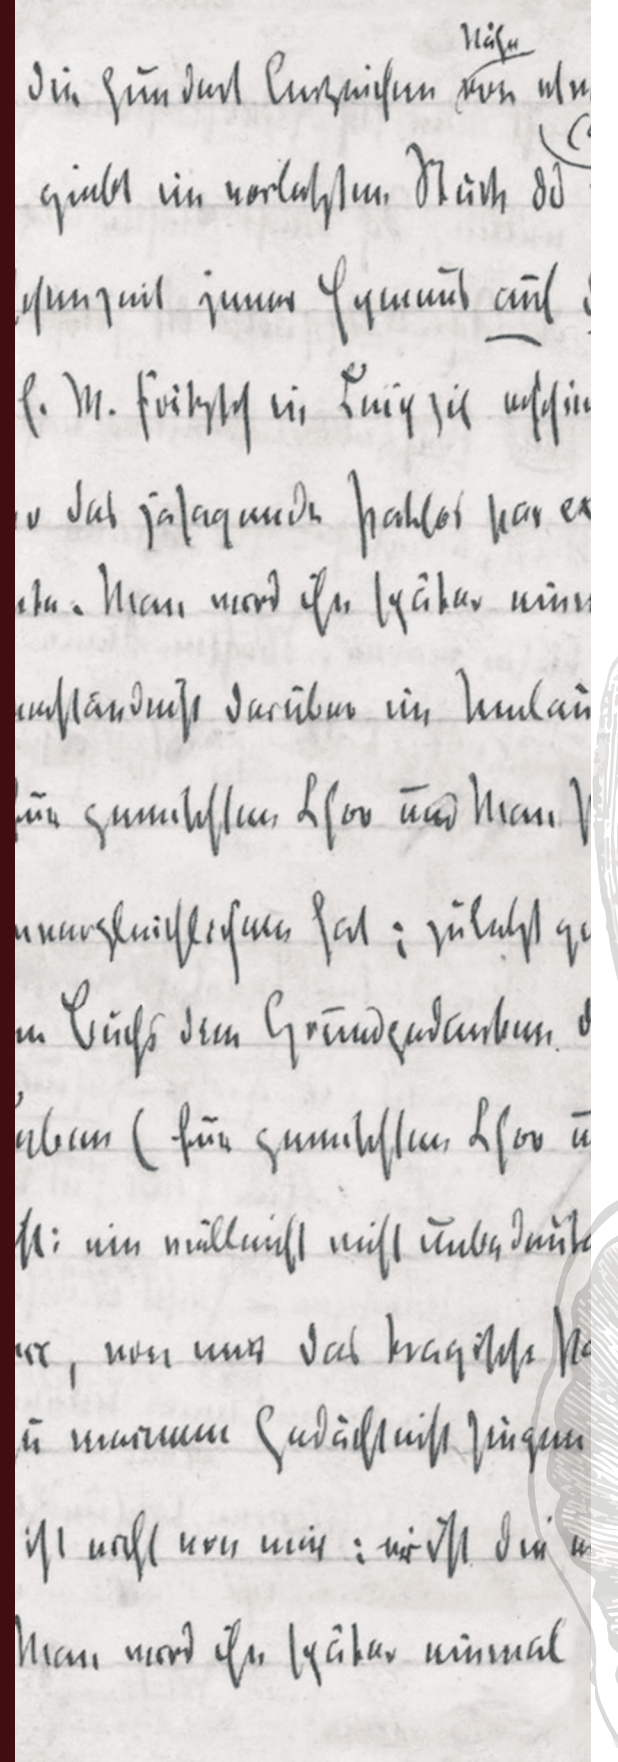 Nähe
die hundert Anzeichen von
giebt im vorletzten Stück
jener Hymnus auf
E. W. Fritzsch in Leipzig erschien
das jasagende Pathos par ex
Man wird ihn später einm
darüber im Umlau
für gemischten Chor und Man
unvergleichlichem hat ; zuletzt
Buchs den Grundgedanken
Leben ( für gemischten Chor u
ist : ein vielleicht nicht unbedeute
, von mir das tragische Pa
zu meinem Gedächtniß singen
ist nicht von mir : er ist die
Man wird ihn später einmal